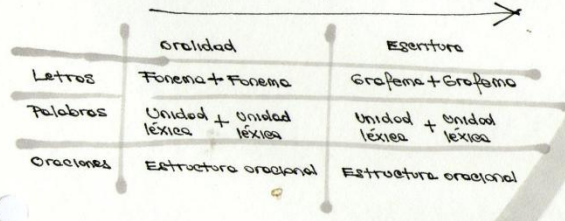 oralidad Escritura
Letras Fonema + Fonema Grafema + Grafema
Palabras Unidad léxica + unidad léxica unidad léxica + unidad léxica
Oraciones Estructura oracional Estructura oracional